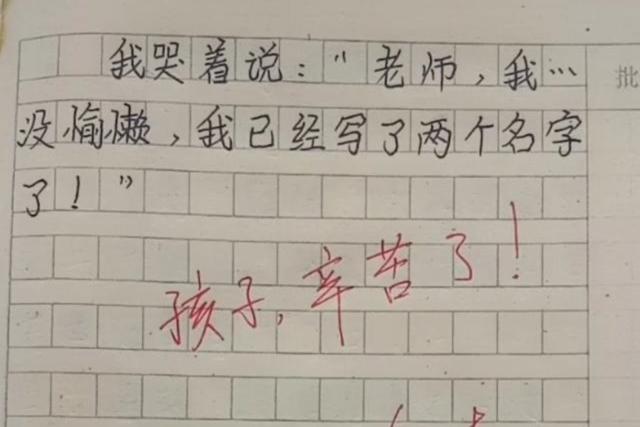 我哭着说:“老师,我…
没偷懒,我已经写了两个名字
了!”
孩子,辛苦了!
批